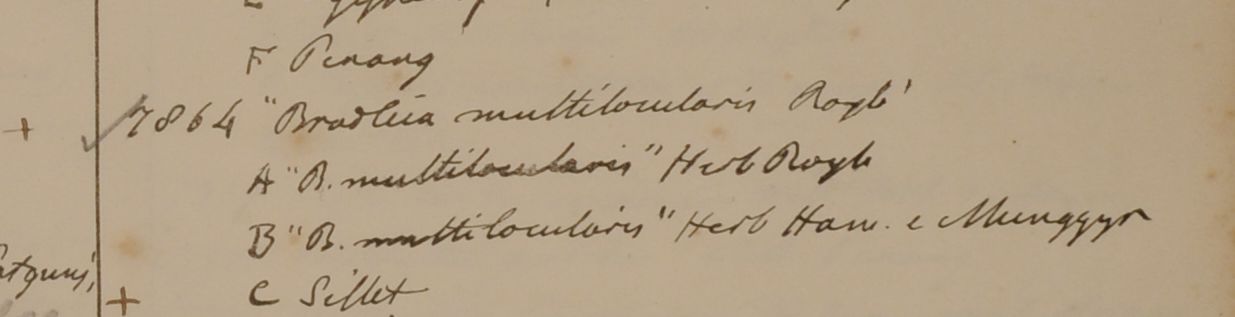 F Penang
7864 "Bradleia multilocularis Roxb'
A "B. multilocularis" Herb Roxb
B "B. multilocularis" Herb Ham. e Mungger
+ C Sillet